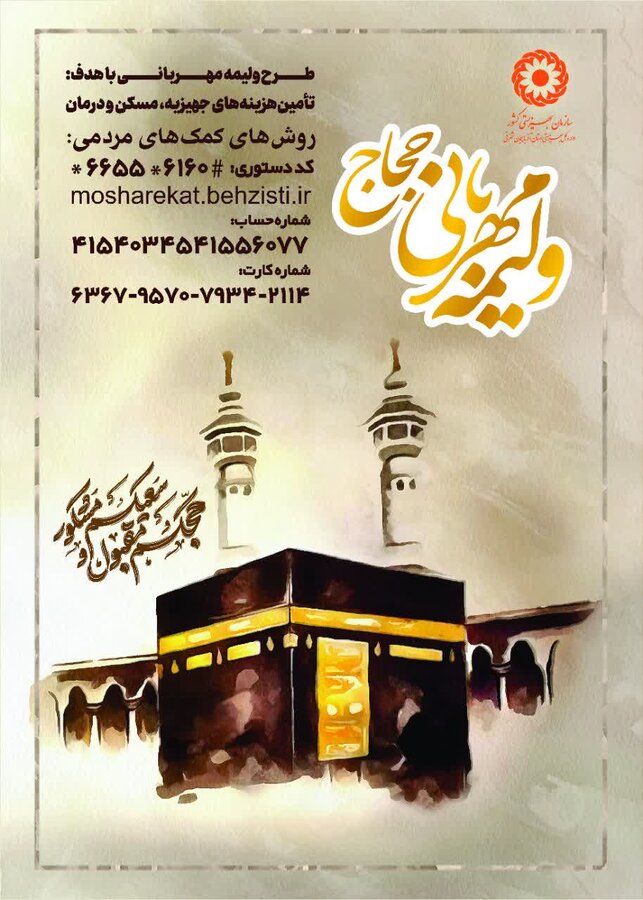 سازمان بهزیستی کشور
اداره کل بهزیستی استان آذربایجان شرقی
ولیمه مهربانی حجاج
طرح ولیمه مهربانی با هدف:
تأمین هزینه‌های جهیزیه، مسکن و درمان
روش‌های کمک‌های مردمی:
کد دستوری: #۶۱۶۰* ۶۶۵۵ *
mosharekat.behzisti.ir
شماره حساب:
۴۱۵۴۰۳۴۵۴۱۵۵۶۰۷۷
شماره کارت:
۶۳۶۷-۹۵۷۰-۷۹۳۴-۲۱۱۴
حجکم مقبول و
سعیکم مشکور